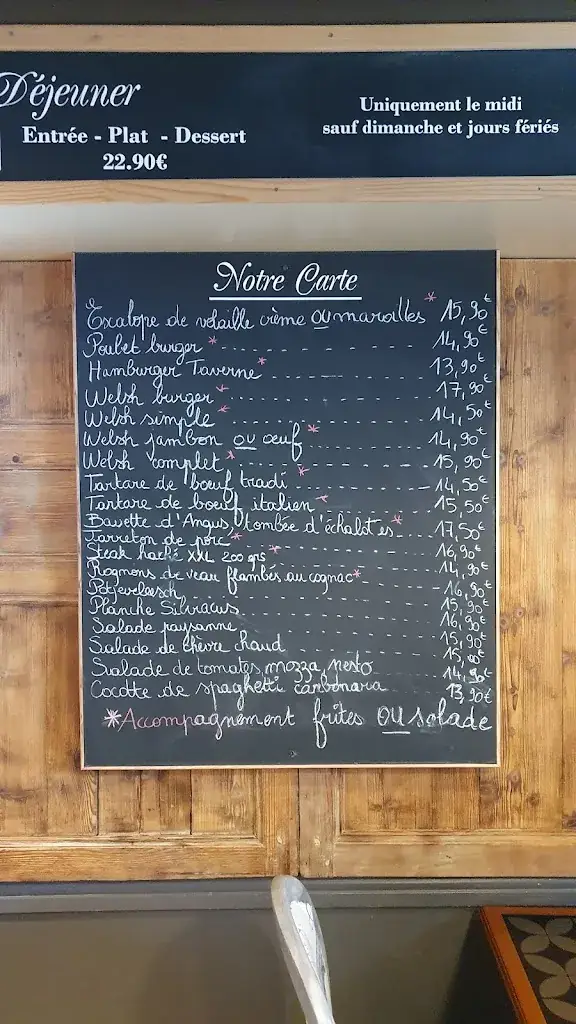 Déjeuner
Entrée - Plat - Dessert
22.90€
Uniquement le midi
sauf dimanche et jours fériés
Notre Carte
Escalope de volaille crème ou maroilles * 15,90€
Poulet burger * 14,90€
Hamburger Taverne * 13,90€
Welsh burger * 17,90€
Welsh simple * 14,50€
Welsh jambon ou œuf * 14,90€
Welsh complet * 15,90€
Tartare de bœuf tradi * 14,50€
Tartare de bœuf italien * 15,50€
Bavette d'Angus, tombée d'échalotes * 17,50€
Jarreton de porc * 16,90€
Steak haché XXL 200 grs * 14,90€
Rognons de veau flambés au cognac * 16,90€
Potjevleesch 15,90€
Planche Silviacus 16,90€
Salade paysanne 15,90€
Salade de chèvre chaud 15,90€
Salade de tomates, mozza, pesto 14,90€
Cocotte de spaghetti carbonara 13,90€
*Accompagnement frites ou salade